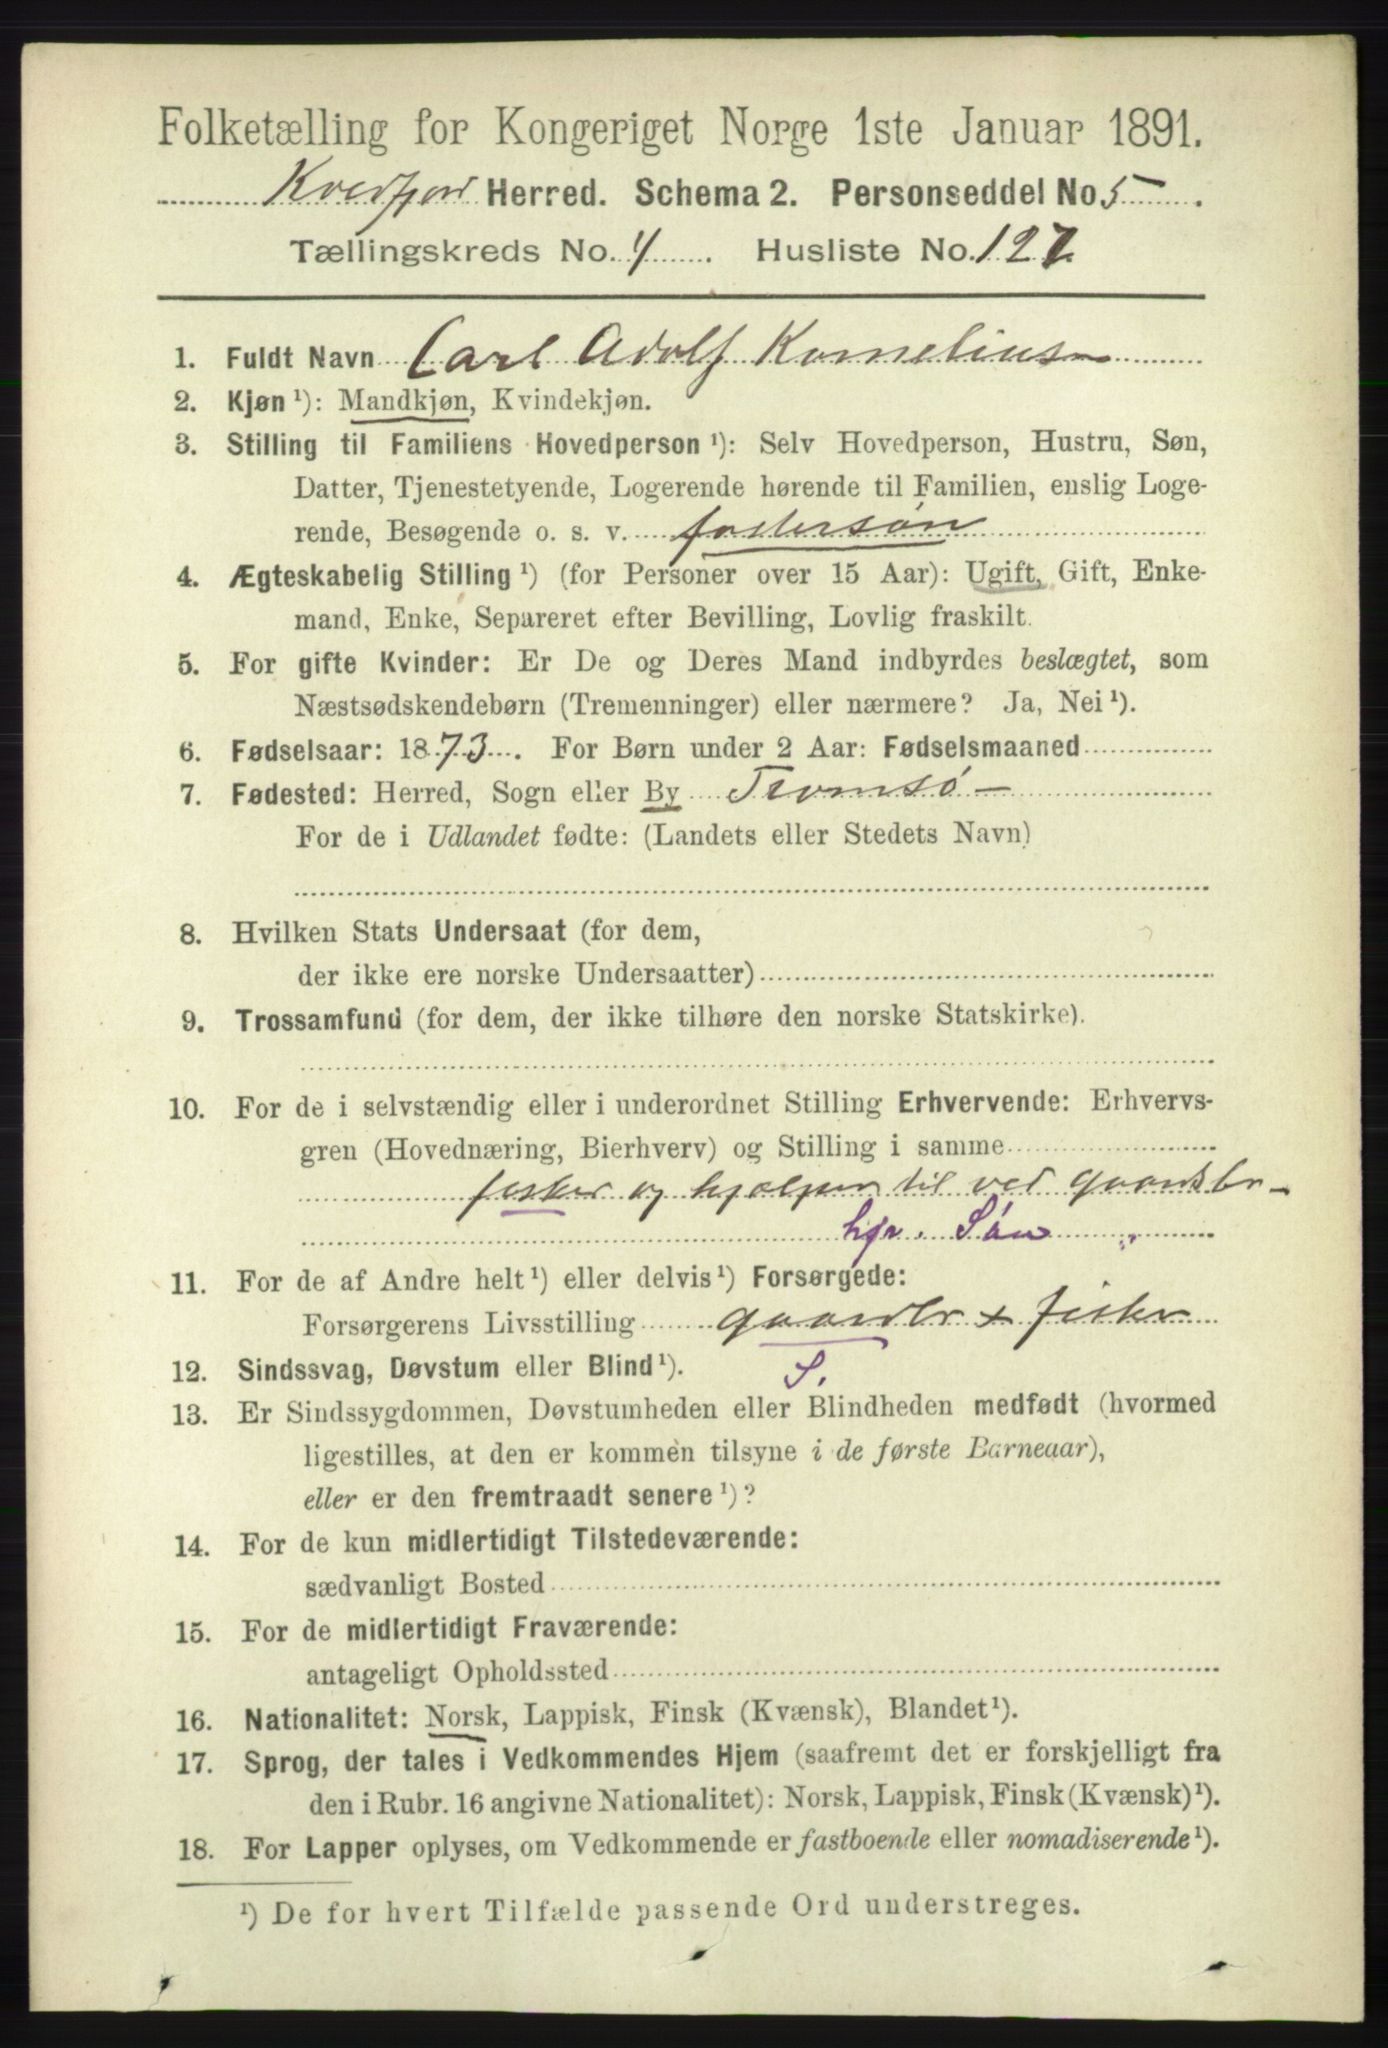 Folketælling for Kongeriget Norge 1ste Januar 1891.
Kvedfjord Herred. Schema 2. Personseddel No 5
Tællingskreds No. 4 Husliste No. 127
1. Fuldt Navn Carl Adolf Korneliusen
2. Kjøn ¹): Mandkjøn, Kvindekjøn.
3. Stilling til Familiens Hovedperson ¹): Selv Hovedperson, Hustru, Søn,
Datter, Tjenestetyende, Logerende hørende til Familien, enslig Loge-
rende, Besøgende o. s. v. fostersøn
4. Ægteskabelig Stilling ¹) (for Personer over 15 Aar): Ugift, Gift, Enke-
mand, Enke, Separeret efter Bevilling, Lovlig fraskilt.
5. For gifte Kvinder: Er De og Deres Mand indbyrdes beslægtet, som
Næstsødskendebørn (Tremenninger) eller nærmere? Ja, Nei ¹).
6. Fødselsaar: 1873. For Børn under 2 Aar: Fødselsmaaned
7. Fødested: Herred, Sogn eller By Tromsø
For de i Udlandet fødte: (Landets eller Stedets Navn)
8. Hvilken Stats Undersaat (for dem,
der ikke ere norske Undersaatter)
9. Trossamfund (for dem, der ikke tilhøre den norske Statskirke).
10. For de i selvstændig eller i underordnet Stilling Erhvervende: Erhvervs-
gren (Hovednæring, Bierhverv) og Stilling i samme
fisker og hjælper til ved gaardsbr
hjr. Søn
11. For de af Andre helt ¹) eller delvis ¹) Forsørgede:
Forsørgerens Livsstilling gaardbr + fisker
12. Sindssvag, Døvstum eller Blind ¹). S.
13. Er Sindssygdommen, Døvstumheden eller Blindheden medfødt (hvormed
ligestilles, at den er kommen tilsyne i de første Barneaar),
eller er den fremtraadt senere ¹)?
14. For de kun midlertidigt Tilstedeværende:
sædvanligt Bosted
15. For de midlertidigt Fraværende:
antageligt Opholdssted
16. Nationalitet: Norsk, Lappisk, Finsk (Kvænsk), Blandet ¹).
17. Sprog, der tales i Vedkommendes Hjem (saafremt det er forskjelligt fra
den i Rubr. 16 angivne Nationalitet): Norsk, Lappisk, Finsk (Kvænsk) ¹).
18. For Lapper oplyses, om Vedkommende er fastboende eller nomadiserende ¹).
¹) De for hvert Tilfælde passende Ord understreges.